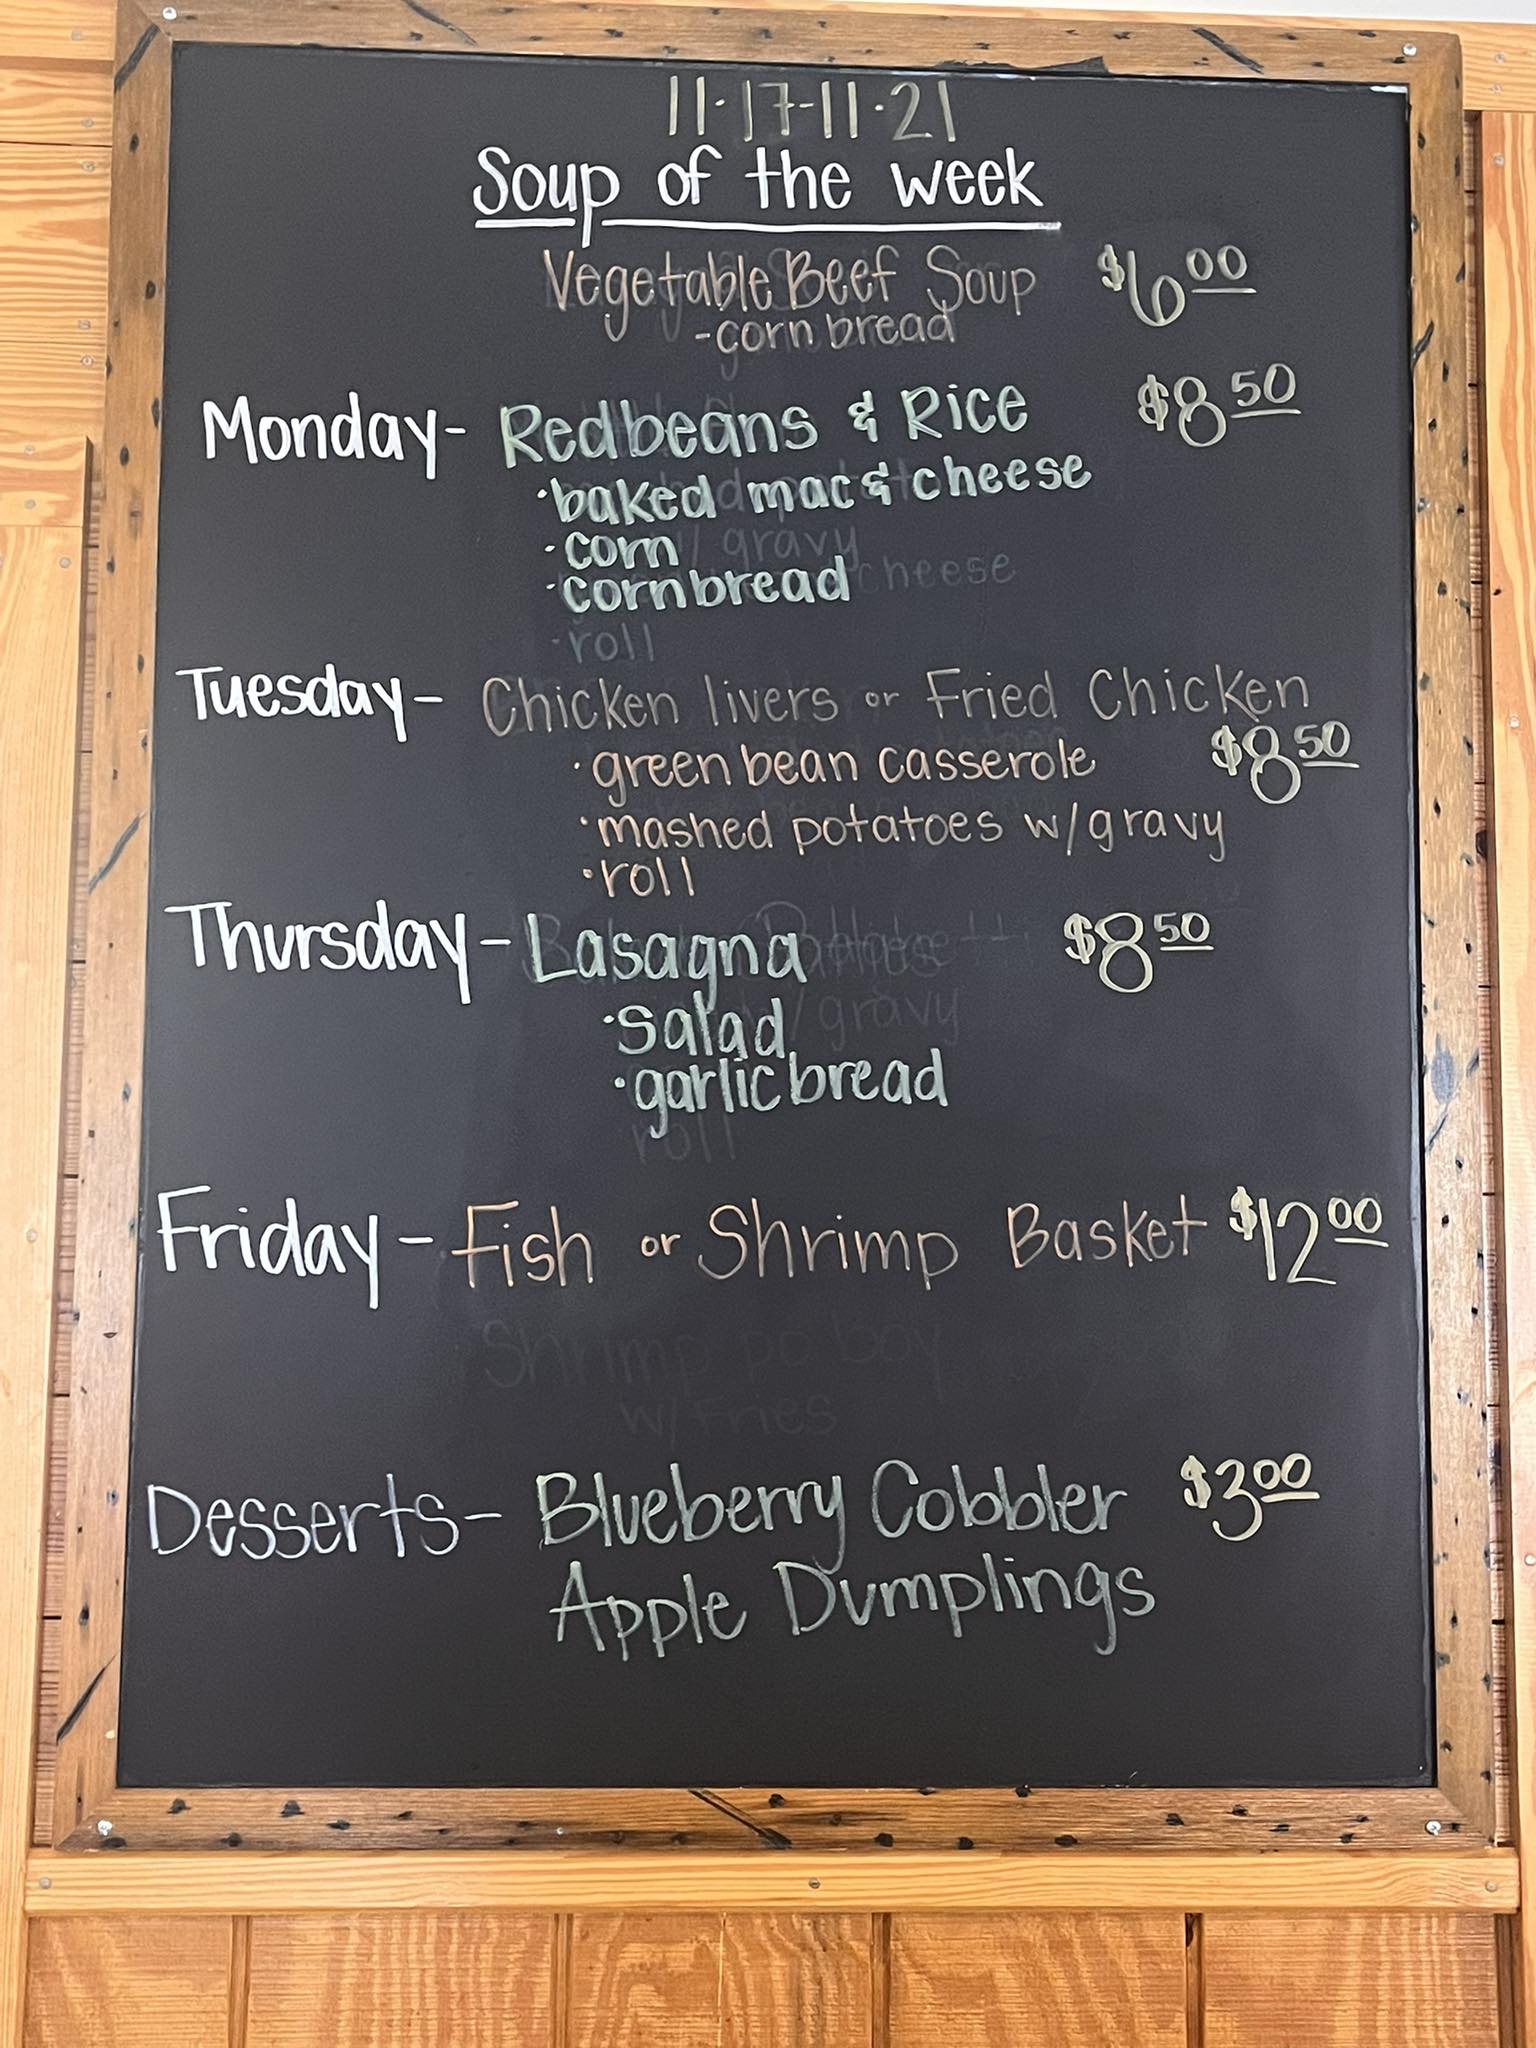 11·17-11·21
Soup of the week
Vegetable Beef Soup $6.00
-corn bread
Monday- Redbeans & Rice $8.50
·baked mac & cheese
·corn
·cornbread
Tuesday- Chicken livers or Fried Chicken
·green bean casserole $8.50
·mashed potatoes w/gravy
·roll
Thursday- Lasagna $8.50
·salad
·garlic bread
Friday- Fish or Shrimp Basket $12.00
Desserts- Blueberry Cobbler $3.00
Apple Dumplings